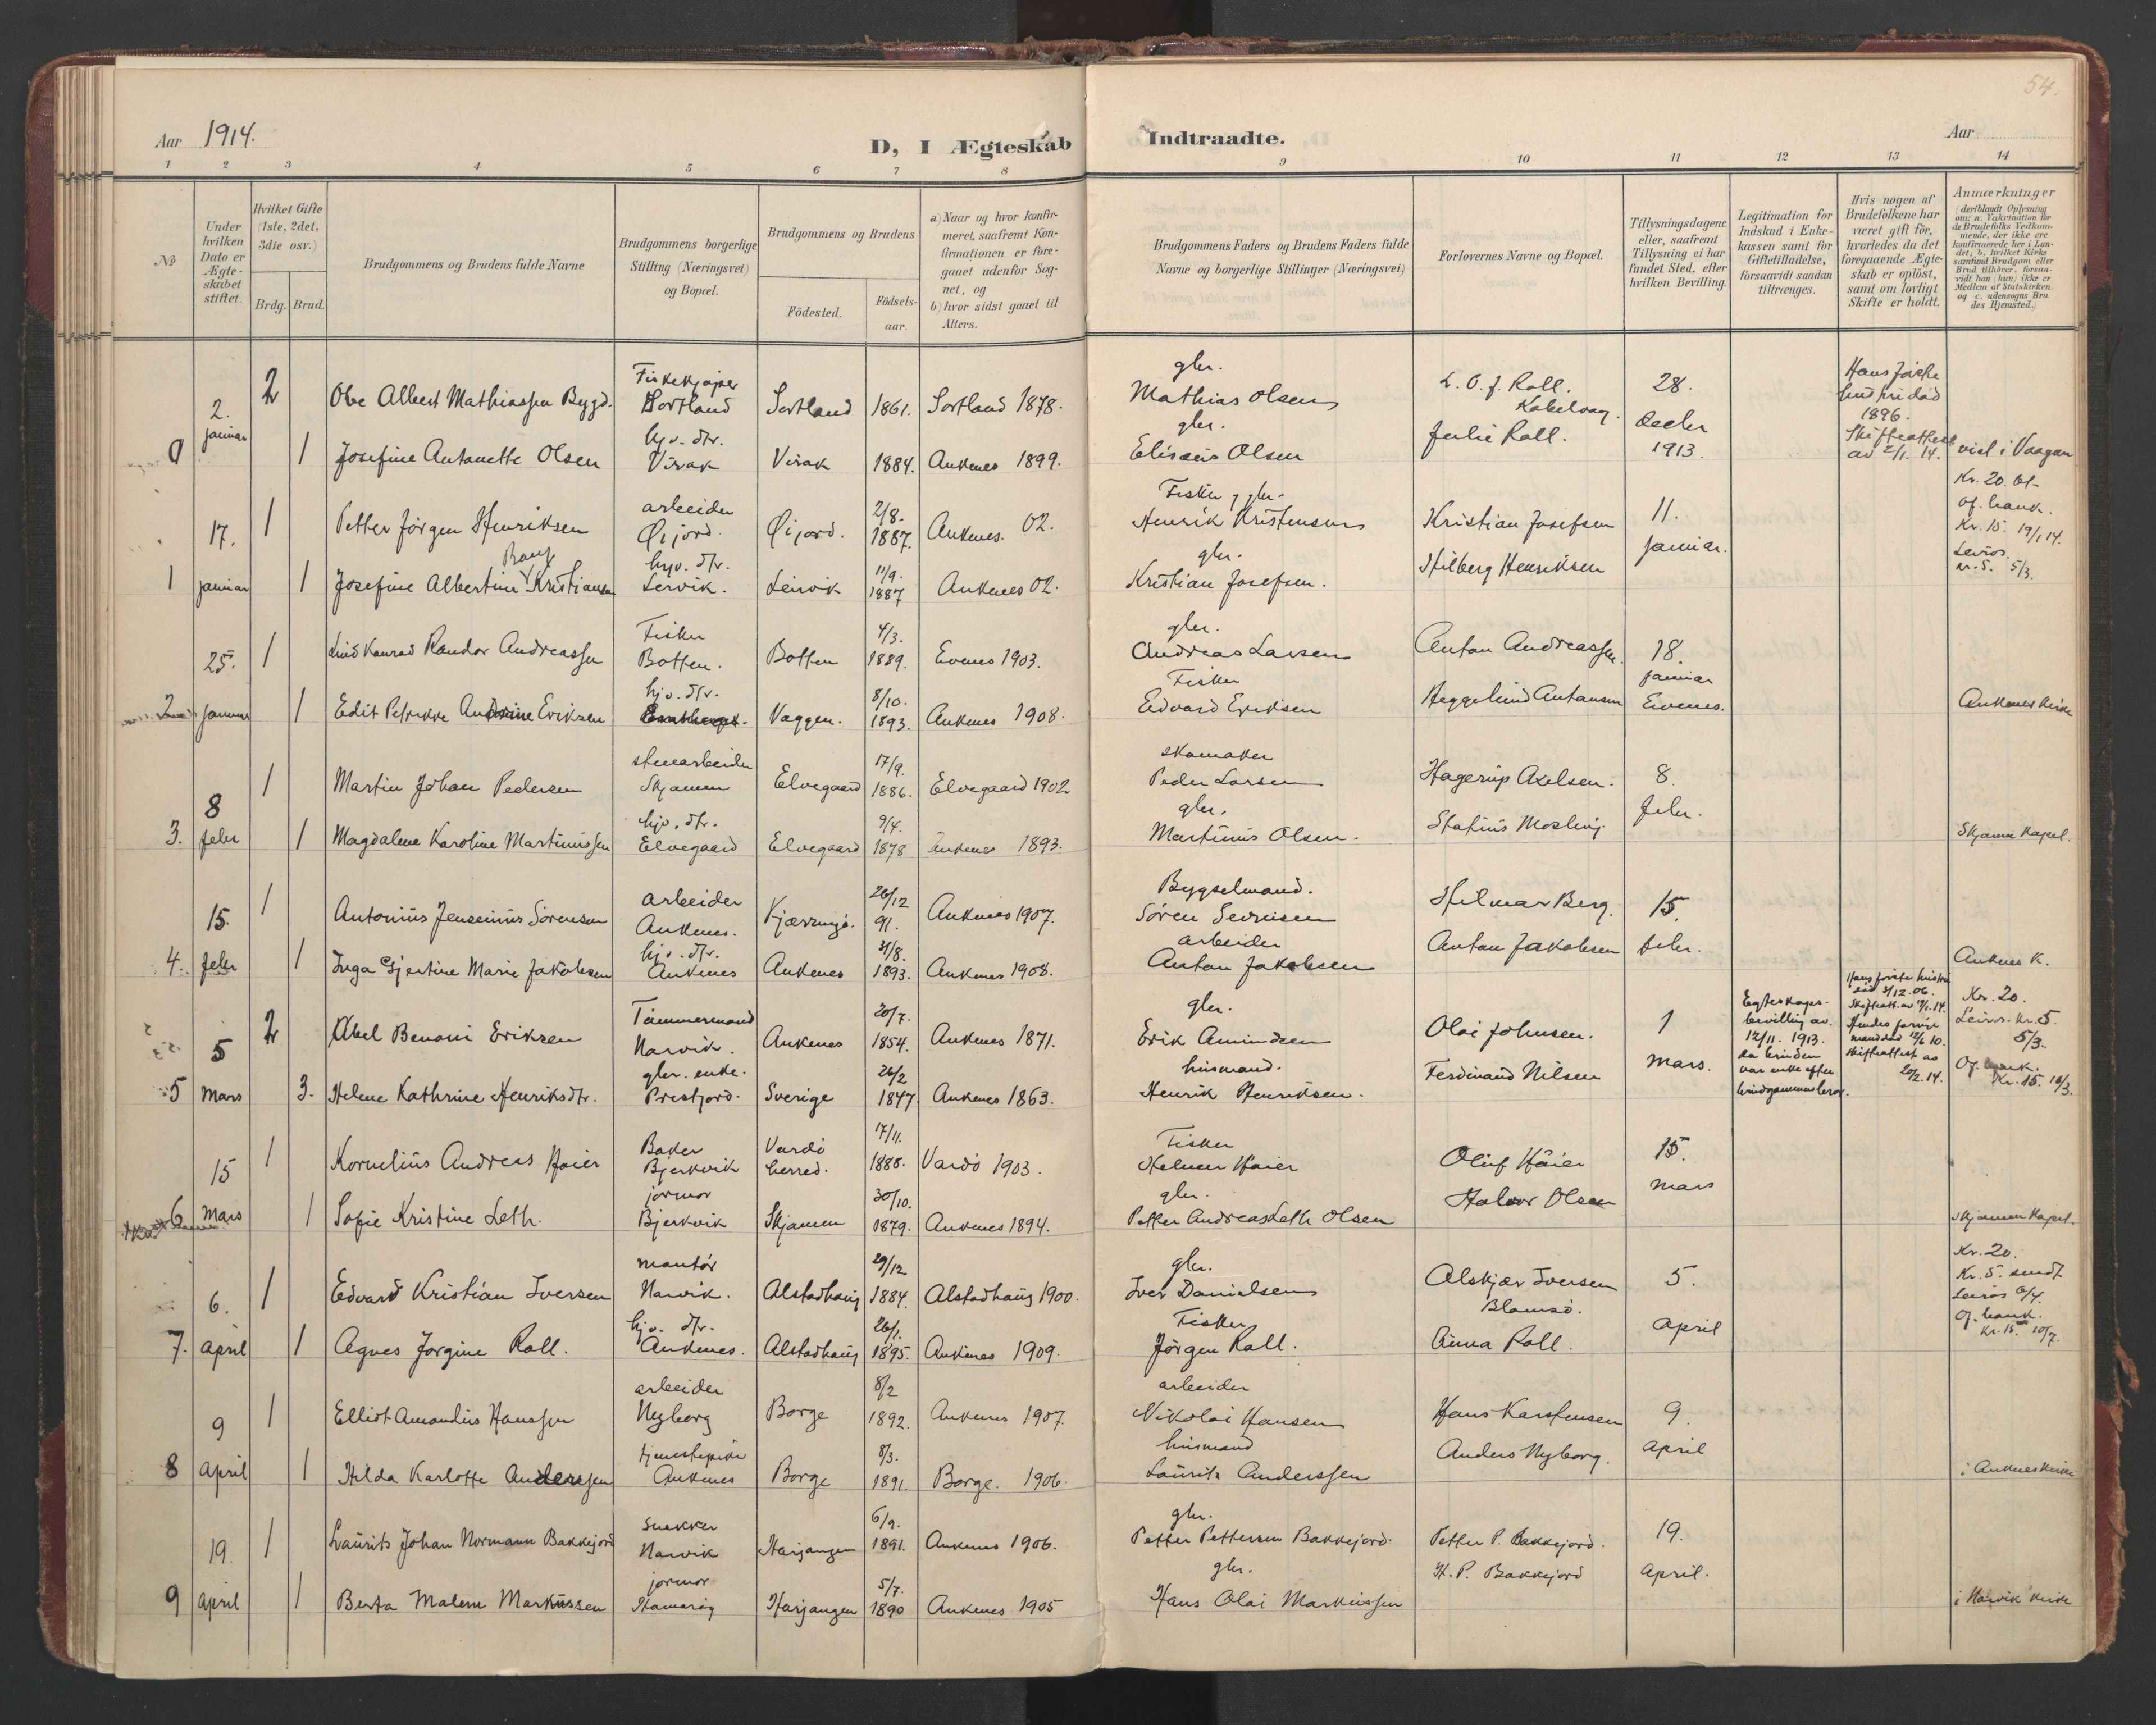 54.
Aar 1914. D, I Ægteskab Indtraadte. Aar
1 2 3 4 5 6 7 8 9 10 11 12 13 14
No
Under hvilken Dato er Ægteskabet stiftet.
Hvilket Gifte (1ste, 2det, 3die osv.)
Brdg. Brud.
Brudgommens og Brudens fulde Navne
Brudgommens borgerlige Stilling (Næringsvei) og Bopæl.
Brudgommens og Brudens
Födested. Födselsaar.
a) Naar og hvor konfirmeret, saafremt Konfirmationen er foregaaet udenfor Sognet, og
b) hvor sidst gaaet til Alters.
Brudgommens Faders og Brudens Faders fulde Navne og borgerlige Stillinger (Næringsvei)
Forlovernes Navne og Bopæl.
Tillysningsdagene eller, saafremt Tillysning ei har fundet Sted, efter hvilken Bevilling.
Legitimation for Indskud i Enkekassen samt for Giftetilladelse, forsaavidt saadan tiltrænges.
Hvis nogen af Brudefolkene har været gift för, hvorledes da det foregaaende Ægteskab er oplöst, samt om lovligt Skifte er holdt.
Anmærkninger (deriblandt Oplysning om: a. Vakcination for de Brudefolks Vedkommende, der ikke ere konfirmerede her i Landet; b. hvilket Kirkesamfund Brudgom eller Brud tilhörer, forsaavidt han (hun) ikke er Medlem af Statskirken, og c. udensogns Brudes Hjemsted.)
2. januar 2 Ove Albert Mathiassen Bygd. Fiskekjöper Sortland Sortland 1861. Sortland 1878. gbr. Mathias Olsen L. O. J. Roll. Kabelvaag. 28. decbr 1913. Hans förste hustru död 1896. Skifteattest av 2/1. 14.
1 Josefine Antonette Olsen hjv. dtr. Virak Virak 1884. Ankenes 1899. gbr. Elisæus Olsen Julie Roll. viel i Vaagan
17. 1 Petter Jörgen Henriksen arbeider Öijord. Öijord. 2/8. 1887. Ankenes. 02. Fisker, gbr. Henrik Kristensen Kristian Josefsen 11. januar. Kr. 20. Of. bank. Kr. 15. 19/1 14.
1 januar 1 Josefine Albertine Kristiansen hjv. dtr. Lervik. Leirvik 11/9. 1887 Ankenes 02. gbr. Kristian Josefsen. Hilberg Henriksen kr. 5. 5/3.
25. 1 Konrad Randor Andreassen Fisker Botten. Botten 4/3. 1889. Evenes 1903. gbr. Andreas Larsen Anton Andreassen. 18. januar
2 januar 1 Edit Petrikke Andrine Eriksen hjv. dtr. Vaggen. 8/10. 1893. Ankenes 1908. Fisker Edvard Eriksen Heggelund Antonsen Evenes. Ankenes Kirke
8 1 Martin Johan Pedersen stenarbeider Skjomen Elvegaard 17/9. 1886. Elvegaard 1902 skomaker Peder Larsen Hagerup Axelsen. 8. febr.
3. febr 1 Magdalene Karoline Martinussen hjv. dtr. Elvegaard Elvegaard 9/4. 1878 Ankenes 1893. gbr. Martinus Olsen. Statius Mosling Skjomen Kapel.
15. 1 Antonius Jensenius Sörensen arbeider Ankenes. Kjærringö. 26/12 91. Ankenes 1907. Bygselmand. Sören Hilmar Berg. 15. febr.
4. febr 1 Inga Gjertine Marie Jakobsen hjv. dtr. Ankenes Ankenes 31/8. 1893. Ankenes 1908. arbeider Anton Jakobsen Anton Jakobsen Ankenes K.
5 2 Abel Benoni Eriksen Tömmermand Narvik. Ankenes 20/7. 1854. Ankenes 1871. gbr. Erik Amundsen Olai Johnsen. 1 mars. Egteskapsbevilling av 12/11. 1913. da bruden var enke efter brudgommens bror. Hans förste hustru död 3/12. 06. Skifteatt. av Hendes forrige mand död 10. skifteattest av 20/2. 14. Kr. 20. Kr. 5. 5/3.
5 mars 3. Helene Kathrine Henriksdtr. gbr. enke. Prestjord. Sverige 26/2 1847. Ankenes 1863. husmand. Henrik Henriksen. Ferdinand Nilsen Of. bank. Kr. 15. 10/3.
15 1 Kornelius Andreas Haier Baker Bjerkvik Vardö herred. 17/11. 1888. Vardö 1903. Fisker Helmer Haier Oluf Häier 15. mars
6 mars 1 Sofie Kristine Leth. jormor Bjerkvik Skjomen 30/10. 1879. Ankenes 1894. gbr. Petter Andreas Leth Olsen Halvor Olsen Skjomen Kapel.
6. 1 Edvard Kristian Iversen montör Narvik. Alstadhaug 29/12 1884. Alstadhaug 1900. gbr. Iver Danielsen Alskjær Iversen 5. april Kr. 20. Kr. 5. sendt
7. april 1 Agnes Jörgine Roll. hjv. dtr. Ankenes. Alstadhaug 26/1. 1895. Ankenes 1909. Fisker Jörgen Roll. Anna Roll. Of. bank. Kr. 15. 10/7.
9 1 Elliot Amandus Hanssen arbeider Nyborg Borge 8/2 1892. Ankenes 1907. arbeider Nikolai Hansen Hans Karstensen 9. april
8 april 1 Hilda Karlotte Anderssen tjenestepike Ankenes Borge 8/3. 1891. Borge. 1906. husmand Laurits Anderssen Anders Nyborg. i Ankenes Kirke
19. 1 Laurits Johan Normann Bakkejord snekker Narvik Harjangen 6/9. 1891. Ankenes 1906. gbr. Petter Pettersen Bakkejord. Petter P. Bakkejord. 19. april.
9 april 1 Berta Malene Markussen jormor Harjangen 5/7. 1890 Ankenes 1905 gbr. Hans Olai Markussen H. P. Bakkejord i Narvik Kirke